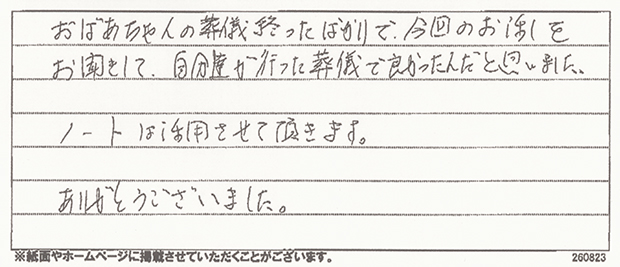 おばあちゃんの葬儀終ったばかりで、今回のお活しを
お聞きして、自分達が行った葬儀で良かったんだと思いました。
ノートは活用させて頂きます。
ありがとうございました。
※紙面やホームページに掲載させていただくことがございます。
260823